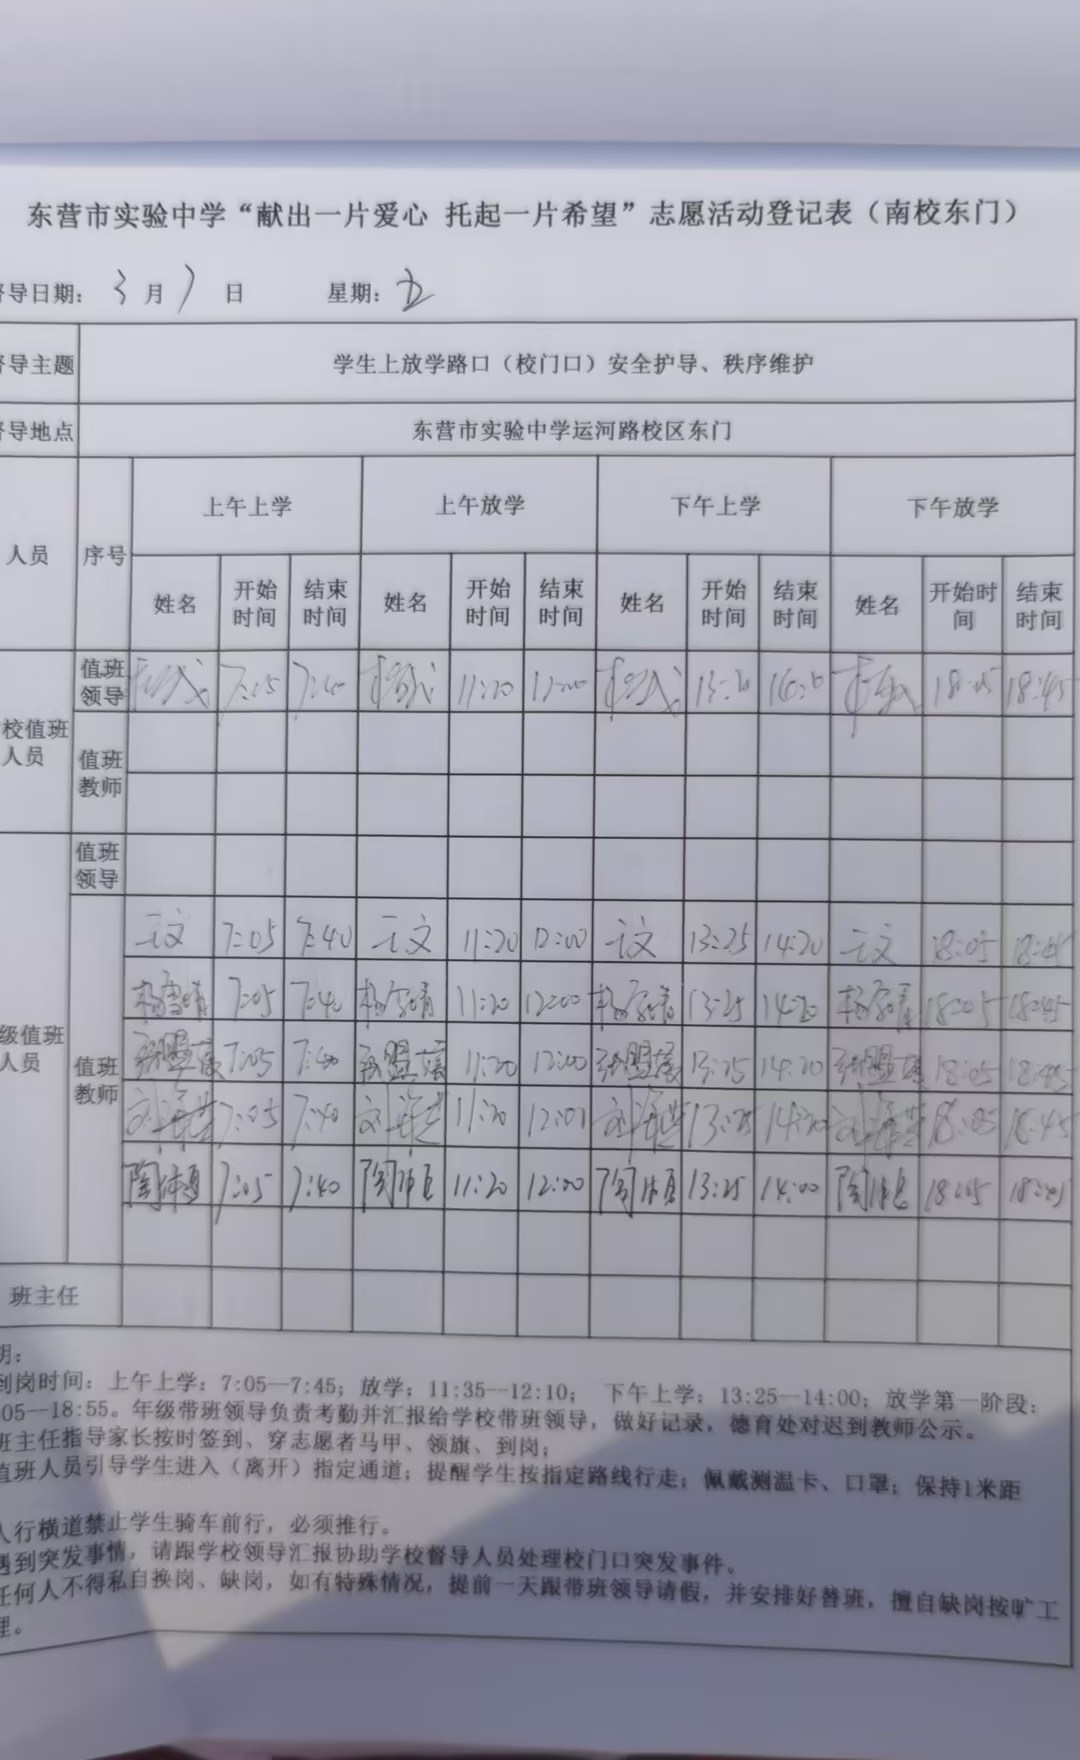 东营市实验中学“献出一片爱心 托起一片希望”志愿活动登记表（南校东门）
导日期：3月7日 星期：五
导主题 学生上放学路口（校门口）安全护导、秩序维护
导地点 东营市实验中学运河路校区东门
人员 序号 上午上学 上午放学 下午上学 下午放学
姓名 开始时间 结束时间 姓名 开始时间 结束时间 姓名 开始时间 结束时间 姓名 开始时间 结束时间
校值班人员 值班领导 11:20 18:45
值班教师
级值班人员 值班领导
值班教师
王文 7:05 7:40 王文 11:20 12:00 王文 13:25 14:20 王文 18:05
7:05 7:40 11:20 12:00 13:25 14:20 18:05 18:45
7:05 7:40 11:20 12:00 13:25 14:20 18:05 18:45
7:05 7:40 11:20 13:25 14:20 18:05 18:45
7:05 7:40 11:20 12:00 13:25 14:00 18:05
班主任
明：
到岗时间：上午上学：7:05—7:45；放学：11:35--12:10； 下午上学：13:25—14:00；放学第一阶段：
05--18:55。年级带班领导负责考勤并汇报给学校带班领导，做好记录，德育处对迟到教师公示。
班主任指导家长按时签到、穿志愿者马甲、领旗、到岗；
值班人员引导学生进入（离开）指定通道；提醒学生按指定路线行走；佩戴测温卡、口罩；保持1米距
人行横道禁止学生骑车前行，必须推行。
遇到突发事情，请跟学校领导汇报协助学校督导人员处理校门口突发事件。
任何人不得私自换岗、缺岗，如有特殊情况，提前一天跟带班领导请假，并安排好替班，擅自缺岗按旷工
理。